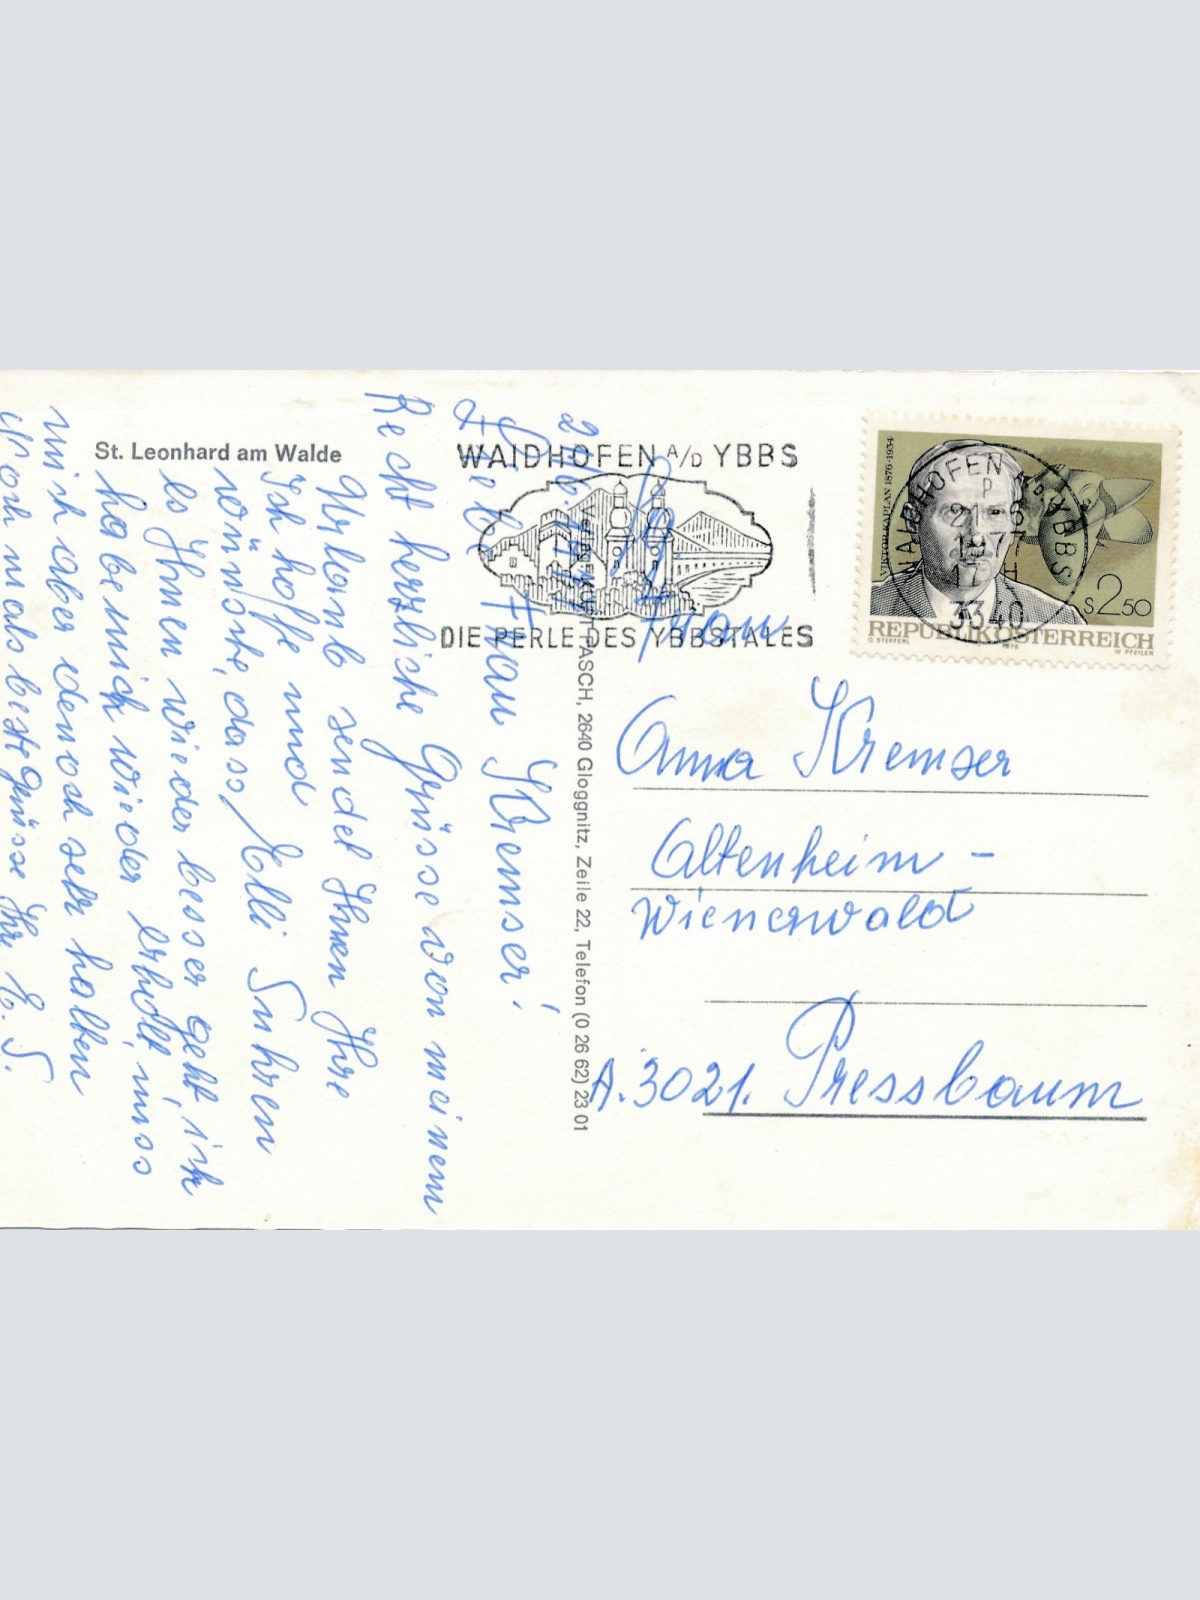 St. Leonhard am Walde
WAIDHOFEN A/D YBBS
DIE PERLE DES YBBSTALES
WAIDHOFEN A.D. YBBS
3340
VIKTOR KAPLAN 1876-1934
S 2.50
REPUBLIK ÖSTERREICH
1976
W. PFEILER
Liebe Frau Kremser!
Recht herzliche Grüsse von meinem
Urlaub sendet Ihnen Ihre
Elli Suhren
Ich hoffe und
wünsche, dass
es Ihnen wieder besser geht, ich
habe mich wieder erholt, muss
mich aber dennoch sehr halten
Nochmals beste Grüsse Ihr. E. S.
Verlag KURT PASCH, 2640 Gloggnitz, Zeile 22, Telefon (0 26 62) 23 01
Frau
Anna Kremser
Altenheim -
Wienerwald
A. 3021. Pressbaum